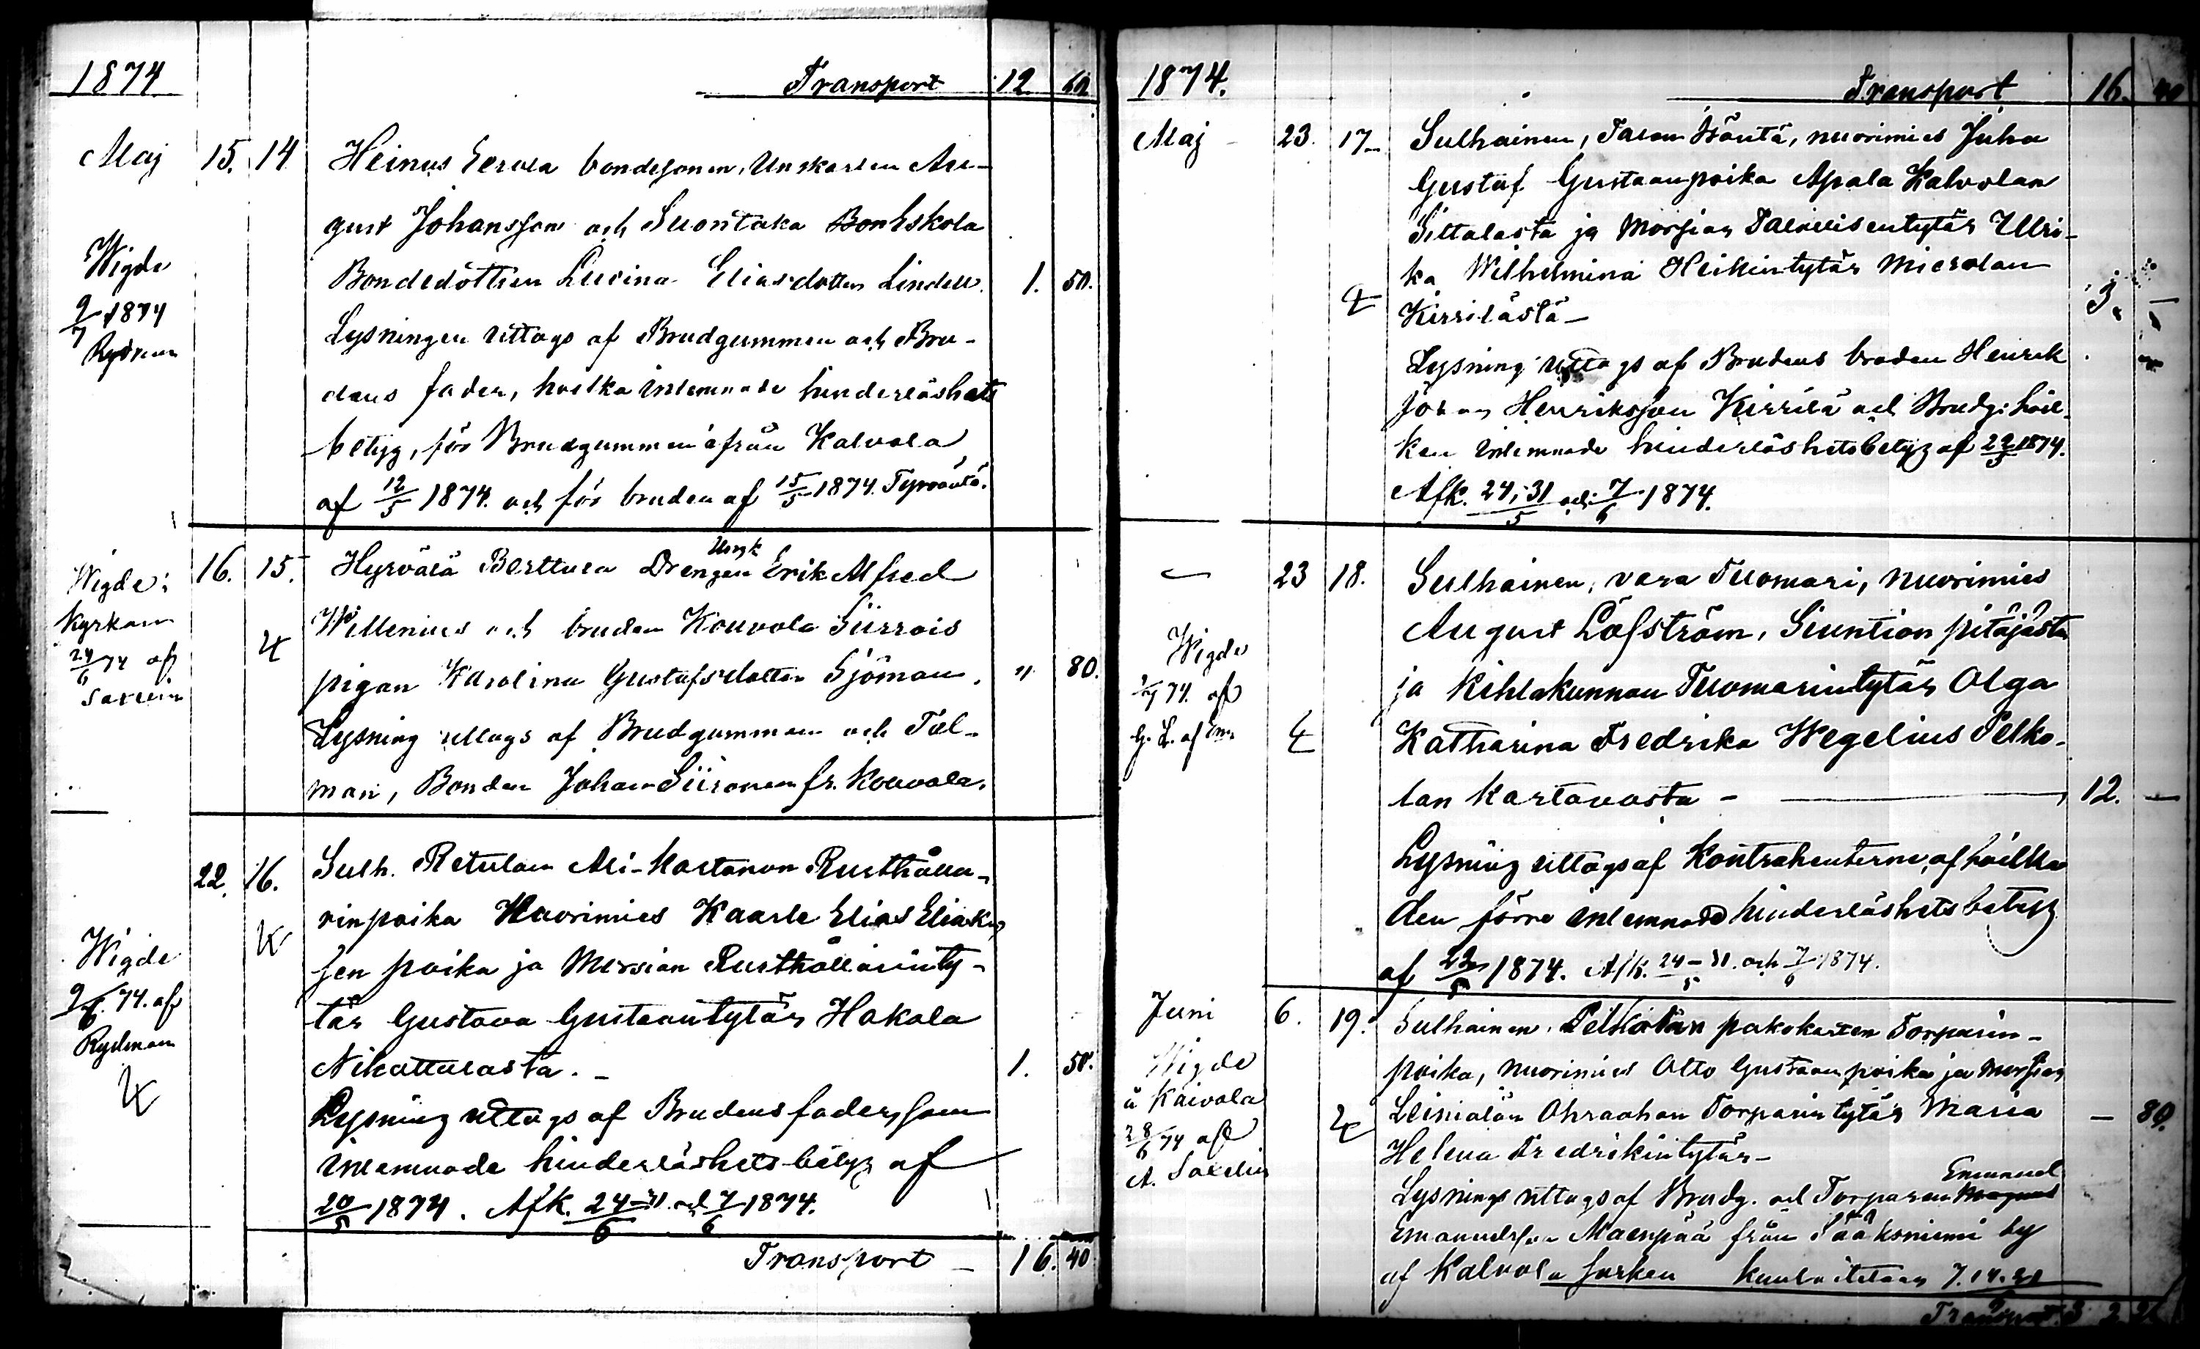 1874
Transport 12 60
Maj 15. 14 Heinus Eerola bondesonen, Unskarlen Au-
gust Johansson och Suontaka Bonhskola
Bondedottren Lucina Eliasdotter Lindell. 1. 50.
Lysningen uttogs af Brudgummen och Bru-
dens fader, hvilka inlemnade hinderlöshets
betyg, för Brudgummen från Kalvola
af 12/5 1874. och för bruden af 15/5 1874. Tyrväntö.
Wigde
9/7 1874
Rydman
16. 15. Hyrvälä Perttula Drengen Unsk Erik Alfred
Willenius och bruden Kouvola Siirrois
pigan Karolina Gustafsdotter Sjöman. " 80.
Lysning uttogs af Brudgummen och Tal-
man, Bonden Johan Siironen fr. Kouvola.
Wigde:
Kyrkan
24/6 74 af
Saxelin
22. 16. Sulh. Retulan Ali-Kartanon Rusthålla-
rinpoika Nuorimies Kaarle Elias Eliak
sen poika ja Morsian Rusthållarinty-
tär Gustava Gustaantytär Hakala
Nikattalasta. - 1. 50.
Lysning uttogs af Brudens fader, som
inlemnade hinderlöshets betyg af
20/5 1874. Afk. 24-31/5 och 7/6 1874.
Wigde
9/6. 74. af
Rydman
Transport - 16. 40
1874.
Transport 16. 40
Maj - 23. 17 Sulhainen, nuorimies Juha
Gustaf Gustaanpoika Apala Kalvolan
Sittalasta ja Morsian Talollisentytär Ulri-
ka Wilhelmina Heikintytär Mierolan
Kirrilästä - 3. -
Lysning uttogs af Brudens broder Henrik
Johan Henriksson Kirrilä och Brudg: hvil-
ken inlemnade hinderlöshetsbetyg af 22/5 1874.
Afk. 24, 31/5 och 7/6 1874.
23 18. Sulhainen, vara Tuomari, nuorimies
August Löfström, Siuntion pitäjästä
ja Kihlakunnan Tuomarintytär Olga
Katharina Fredrika Wegelius Pelko-
lan Kartanosta - 12. -
Lysning uttogs af Kontrahenterne, af hvilka
den förre inlemnade hinderlöshets betyg
af 22/5 1874. Afk. 24-31/5. och 7/6 1874.
Wigde
74. af
Juni 6. 19. Sulhainen. Torparin-
poika, nuorimies Otto Gustaanpoika ja Morsian
Leiniälän Ohraahon Torparintytär Maria - 80.
Helena Fredrikintytär -
Lysning uttogs af Brudg. och Torparen Emanuel
Emanuelsson Maenpää från Pääkoniemi by
af Kalvola socken Kuulutetaan 7. 14. 21
Wigde
å Kaivola
28/6 74 af
A. Saxelin
Transport